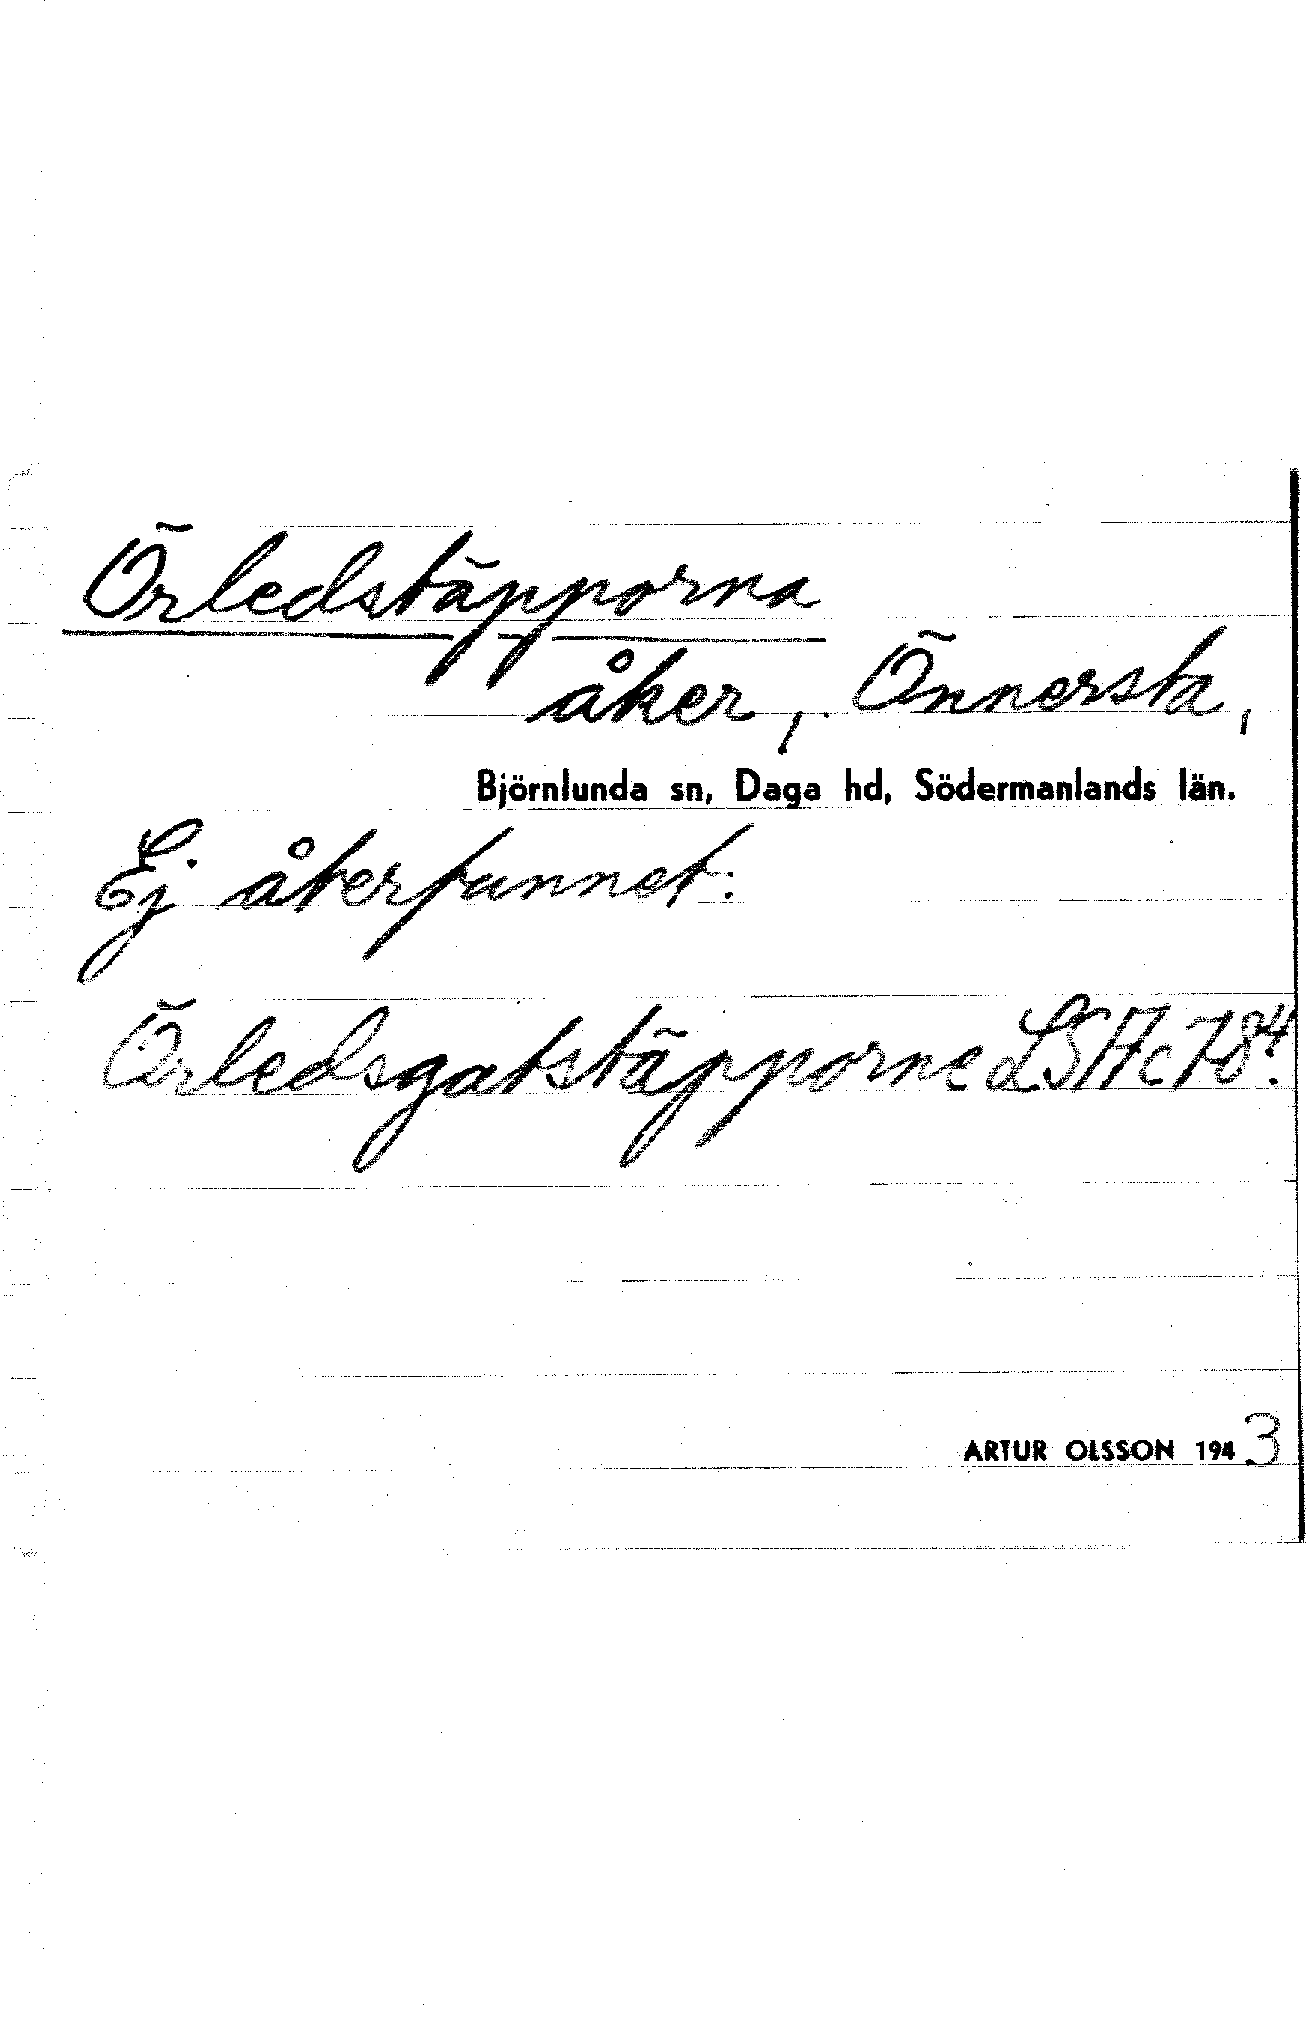 Örledstäpporna
åker, Önnersta,
Björnlunda sn, Daga hd, Södermanlands län.
Ej återfunnet:
Örledsgatstäpporne LSA c 7-8⁴.
ARTUR OLSSON 1943